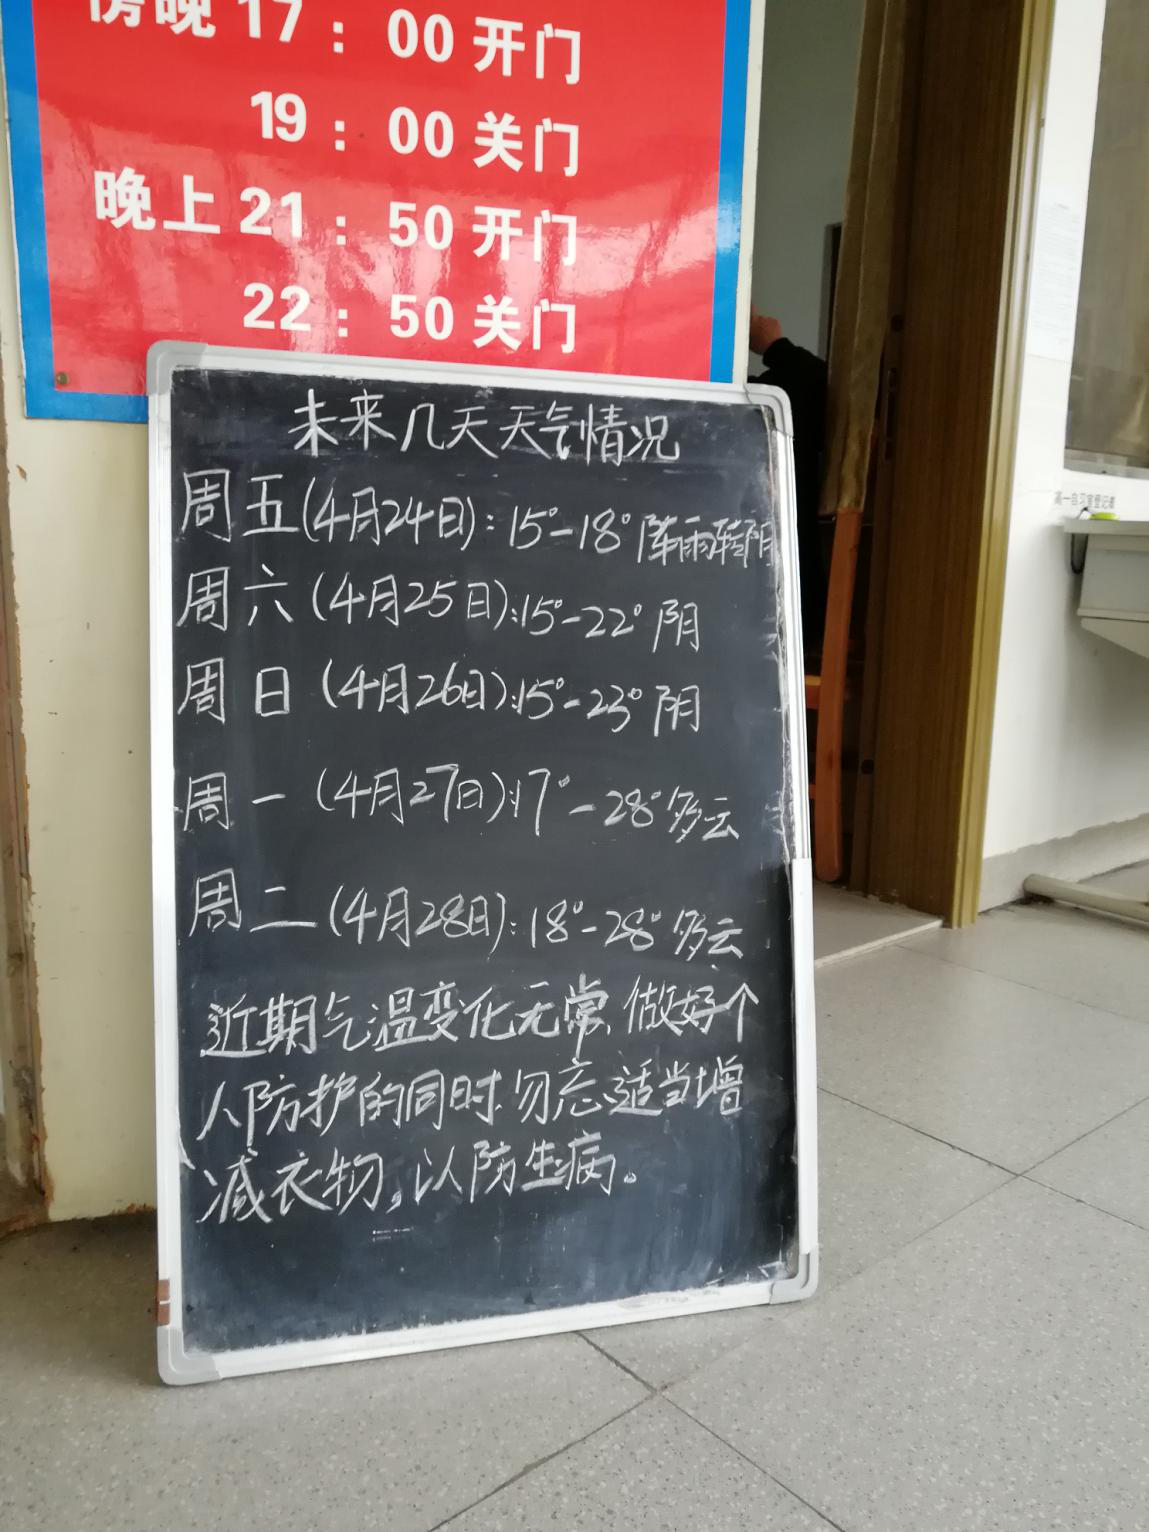 傍晚17：00开门
19：00关门
晚上21：50开门
22：50关门
未来几天天气情况
周五(4月24日)：15°-18°阵雨转阴
周六(4月25日)：15°-22°阴
周日(4月26日)：15°-23°阴
周一(4月27日)：17°-28°多云
周二(4月28日)：18°-28°多云
近期气温变化无常、做好个
人防护的同时.勿忘适当增
减衣物，以防生病。
高一自习室登记表